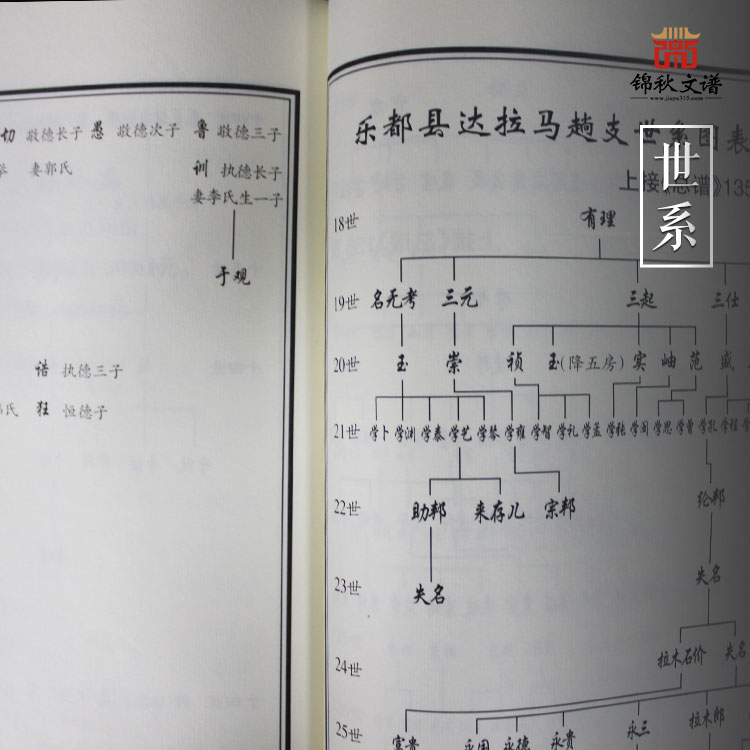 锦秋文谱
www.jiapu315.com
世系
切 敬德长子 愚 敬德次子 鲁 敬德三子
妻郭氏
训 执德长子
妻李氏生一子
于观
诰 执德三子
狂 恒德子
乐都县达拉马趟支世系图表
上接《总谱》135
18世 有理
19世 名无考 三元 三起 三仕
20世 玉 崇 祯 玉(降五房) 实 岫 范 盛
21世 学卜 学渊 学泰 学艺 学琴 学雍 学智 学礼 学孟 学张 学闵 学思 学曾 学孔 学程
22世 助邦 来存儿 宗邦 纶邦
23世 失名 失名
24世 拉木石价 失名
25世 富贵 永国 永德 永贵 永三 拉木郎